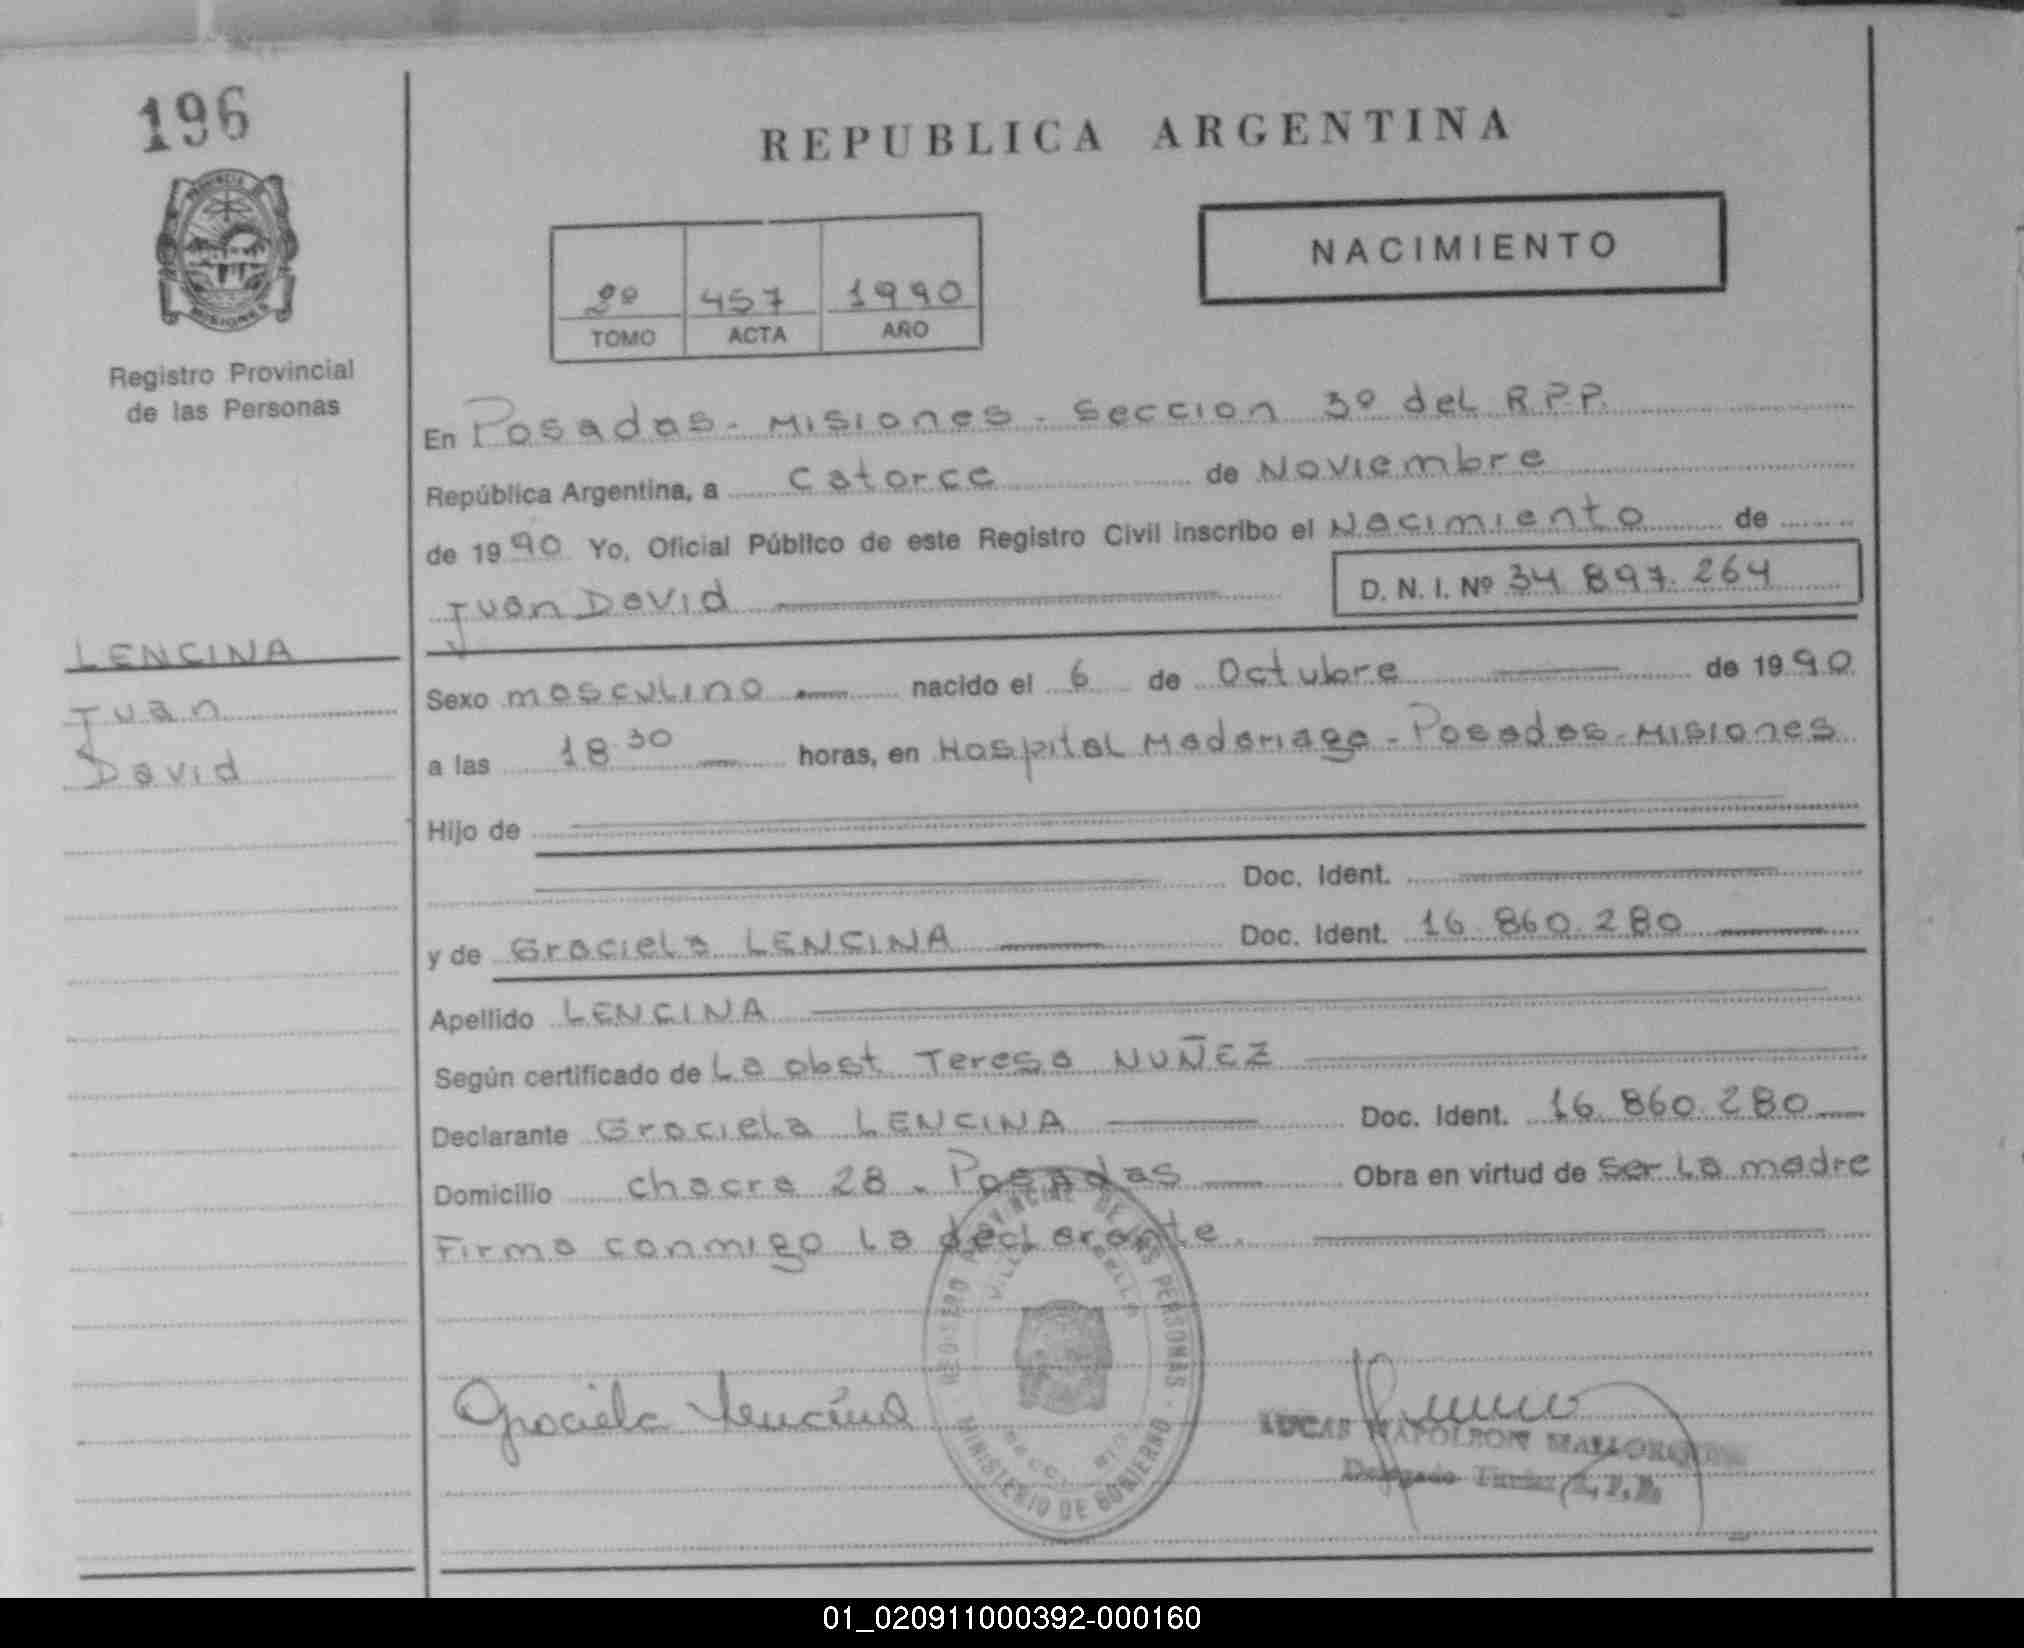 196
REPUBLICA ARGENTINA
PROVINCIA
MISIONES
NACIMIENTO
2º 457 1990
TOMO ACTA AÑO
Registro Provincial
de las Personas
En Posadas - Misiones - Seccion 3º del R.P.P.
República Argentina, a Catorce de Noviembre
de 1990 Yo, Oficial Público de este Registro Civil inscribo el Nacimiento de
Juan David D. N. I. Nº 34 897. 264
LENCINA
Juan
David
Sexo masculino nacido el 6 de Octubre de 1990
a las 18 30 horas, en Hospital Madariaga - Posadas - Misiones
Hijo de
Doc. Ident.
y de Graciela LENCINA Doc. Ident. 16. 860. 280
Apellido LENCINA
Según certificado de La obst Teresa NUÑEZ
Declarante Graciela LENCINA Doc. Ident. 16. 860. 280
Domicilio chacra 28 - Posadas Obra en virtud de ser La madre
Firma conmigo la declarante.
REGISTRO PROVINCIAL DE LAS PERSONAS
MINISTERIO DE GOBIERNO
Graciela Lencina
LUCAS NAPOLEON
Delegado Titular
01_020911000392-000160